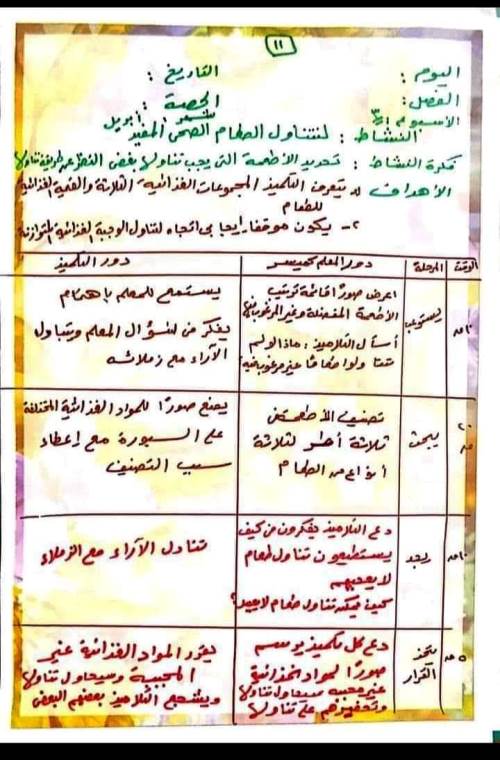 ١١
اليوم : التاريخ :
الفصل : الحصة :
الأسبوع : شهر أبريل
النشاط : لنتناول الطعام الصحى المفيد
فكرة النشاط : تحديد الأطعمة التى يجب تناولها بغض النظر عن طريقة تناولها
الأهداف يتعرف التلميذ المجموعات الغذائية الثلاثة والقيمة الغذائية
للطعام
٢- يكون موقفا إيجابى اتجاه لتناول الوجبة الغذائية المتوازنة
الوقت المرحلة دور المعلم كميسر دور التلميذ
١٠ د يستوعب
اعرض صورًا قائمة ترتيب
الأطعمة المفضلة وغير المرغوب فيها
أسأل التلاميذ : ماذا لو لم
تتناولوا طعامًا غير مرغوب فيه؟
يستمع للمعلم باهتمام
يفكر فى سؤال المعلم ويتبادل
الآراء مع زملائه
٢٠ د يبحث
تصنيف الأطعمة فى
ثلاثة أطر لثلاثة
أنواع من الطعام
يضع صورًا للمواد الغذائية المختلفة
على السبورة مع إعطاء
سبب التصنيف
١٠ د يجد
دع التلاميذ يفكرون فى كيف
يستطيعون تناول طعام
لا يعجبهم
كيف يمكنه تناول طعام لا يحبه؟
تتبادل الآراء مع الزملاء
٥ د يتخذ القرار
دع كل تلميذ يرسم
صورًا لمواد الغذائية
غير محببة سيحاول تناولها
وتحفيزهم على تناولها
يقرر المواد الغذائية غير
المحببة وسيحاول تناولها
ويشجع التلاميذ بعضهم البعض